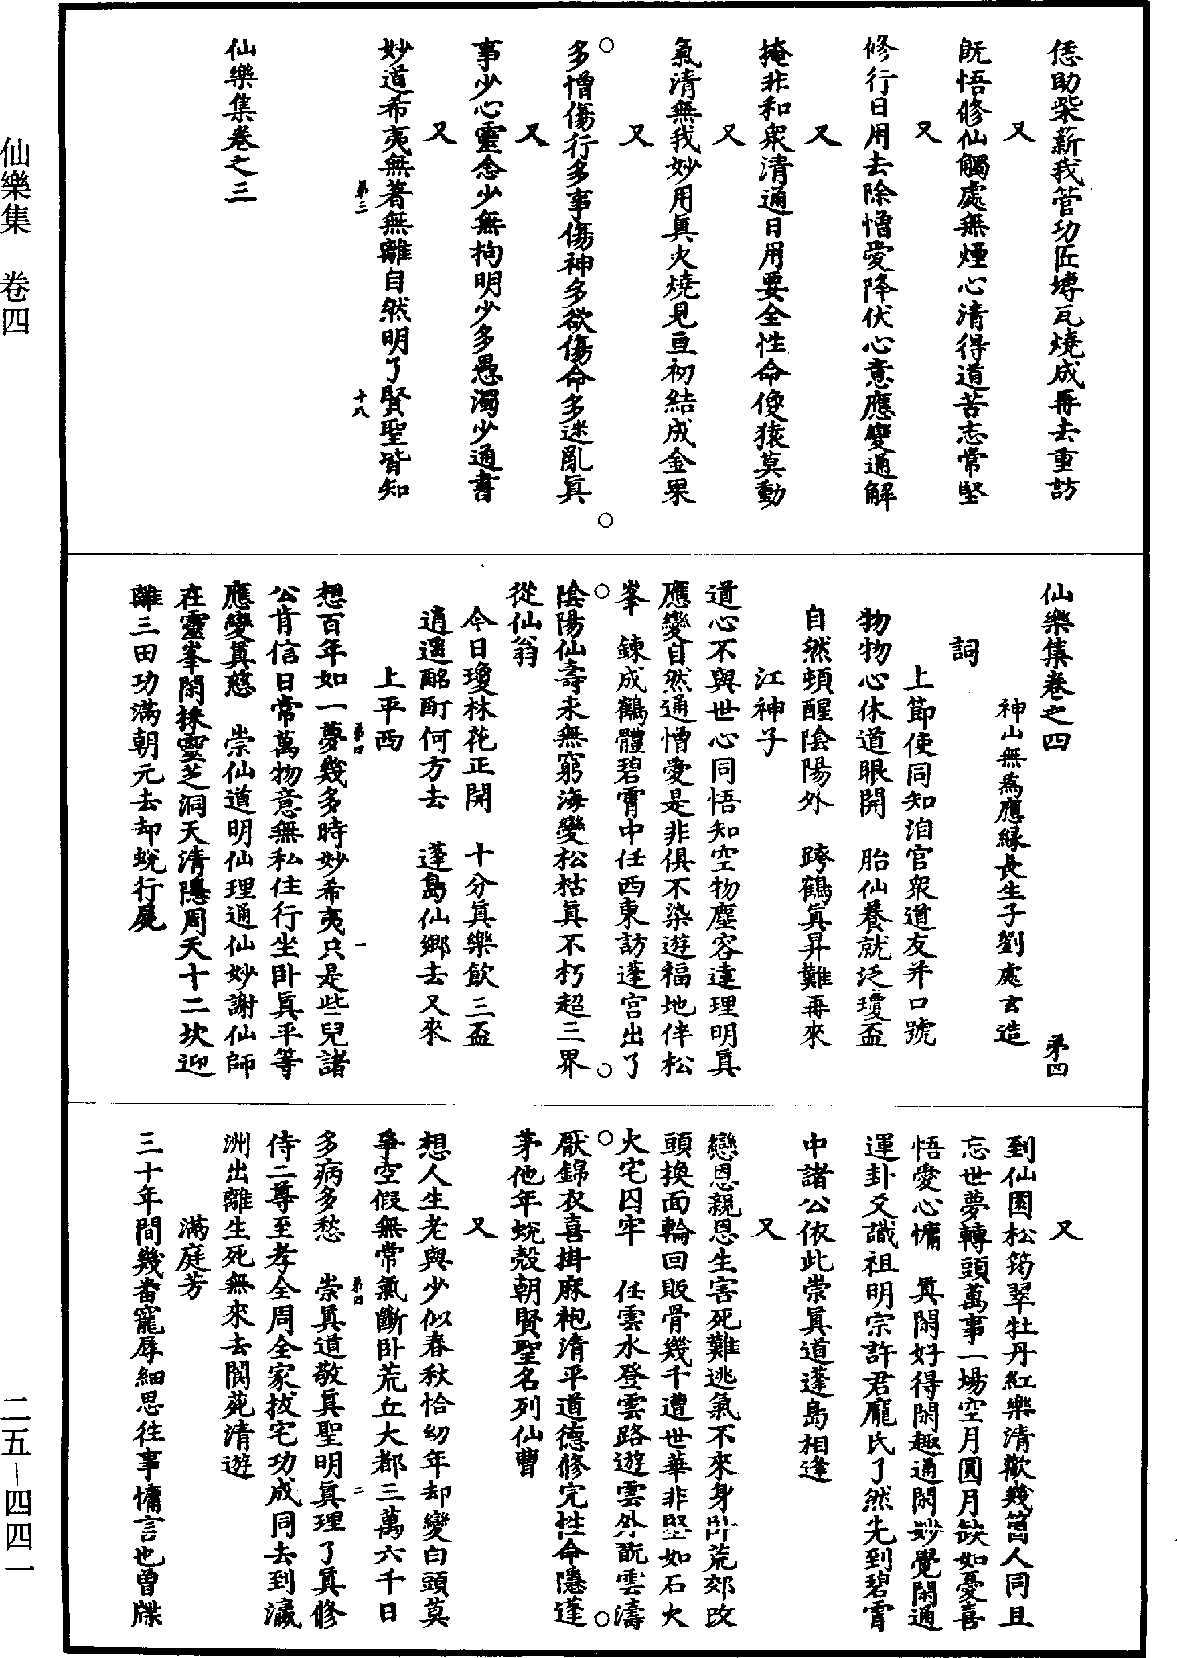 恁助柴薪我管功匠塼瓦燒成再去重訪
又
既悟修仙觸處無煙心清得道苦志常堅
又
修行日用去除憎愛降伏心意應變通解
又
掩非和衆清通日用要全性命使猿莫動
又
氣清無我妙用眞火燒見亘初結成金果
又
多憎傷行多事傷神多欲傷命多迷亂眞
又
事少心靈念少無拘明少多愚濁少通書
又
妙道希夷無著無離自然明了賢聖皆知
第三
十八
仙樂集卷之三
仙樂集卷之四
弟四
神山無爲應緣長生子劉處玄造
詞
上節使同知洎官衆道友并口號
物物心休道眼開　胎仙養就泛瓊盃
自然頓醒陰陽外　跨鶴眞昇難再來
江神子
道心不與世心同悟知空物塵容達理明眞
應變自然通憎愛是非俱不染遊福地伴松
峯　鍊成鶴體碧霄中任西東訪蓬宮出了
陰陽仙壽永無窮海變松枯眞不朽超三界
從仙翁
今日瓊林花正開　十分眞樂飲三盃
逍遥酩酊何方去　蓬島仙鄉去又來
上平西
想百年如一夢幾多時妙希夷只是些兒諸
第四
一
公肯信日常萬物意無私住行坐卧眞平等
應變眞慈　崇仙道明仙理通仙妙謝仙師
在靈峯閑採靈芝洞天清隱周天十二坎迎
離三田功滿朝元去却蛻行屍
又
到仙園松筠翠牡丹紅樂清歡幾箇人同且
忘世夢轉頭萬事一場空月圓月缺如憂喜
悟愛心慵　眞閑好得閑趣通閑妙覺閑通
運卦爻識祖明宗許君龐氏了然先到碧霄
中諸公依此崇眞道蓬島相逢
又
戀恩親恩生害死難逃氣不來身卧荒郊改
頭換面輪回販骨幾千遭世華非堅如石火
火宅囚牢　任雲水登雲路遊雲外翫雲濤
厭錦衣喜掛麻袍清平道德修完性命隱蓬
茅他年蛻殼朝賢聖名列仙曹
又
想人生老與少似春秋恰幼年却變白頭莫
爭空假無常氣斷卧荒丘大都三萬六千日
多病多愁　崇眞道敬眞聖明眞理了眞修
第四
二
侍二尊至孝全周全家拔宅功成同去到瀛
洲出離生死無來去閬苑清遊
滿庭芳
三十年間幾番寵辱細思往事慵言也曾牒
仙樂集　卷四
二五—四四一